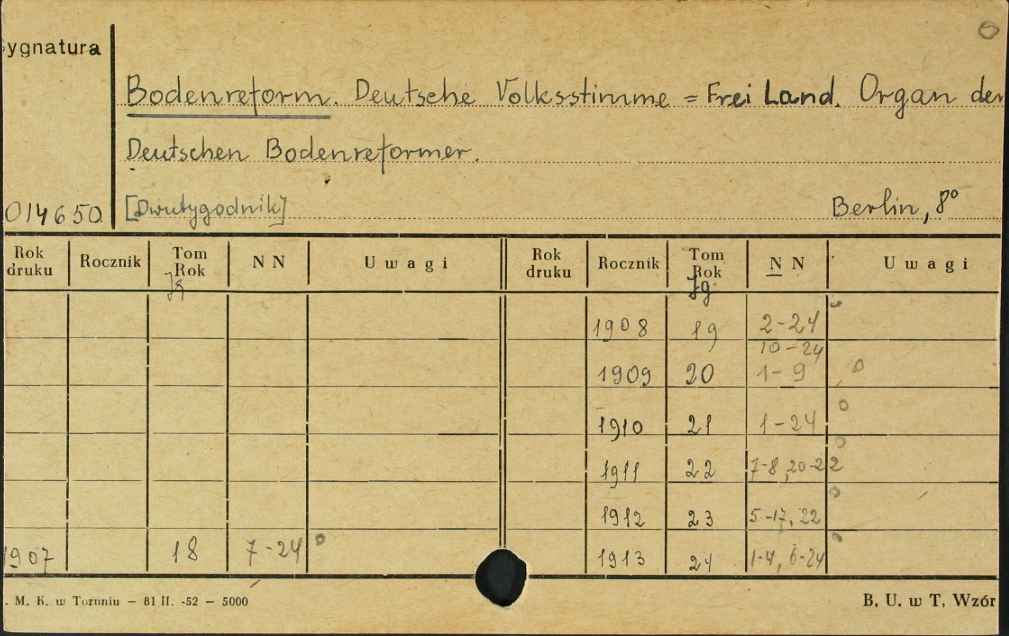 ygnatura
Bodenreform. Deutsche Volksstimme = Frei Land. Organ der
Deutschen Bodenreformer.
014650 [Dwutygodnik] Berlin, 8°
Rok druku Rocznik Tom Rok Jg N N Uwagi Rok druku Rocznik Tom Rok Jg. N N Uwagi
1908 19 2-24
10-24
1909 20 1-9
1910 21 1-24
1911 22 7-8, 20-22
1912 23 5-17, 22
1907 18 7-24 1913 24 1-4, 6-24
. M. K. w Toruniu – 81 II. -52 – 5000 B. U. w T. Wzór